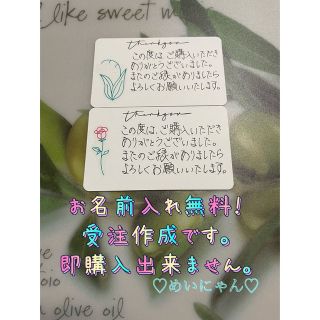 like sweet
thankyou
この度は、ご購入いただき
ありがとうございました。
またのご縁がありましたら
よろしくお願いいたします。
thankyou
この度は、ご購入いただき
ありがとうございました。
またのご縁がありましたら
よろしくお願いいたします。
お名前入れ無料!
受注作成です。
即購入出来ません。
♡めいにゃん♡
olive oil